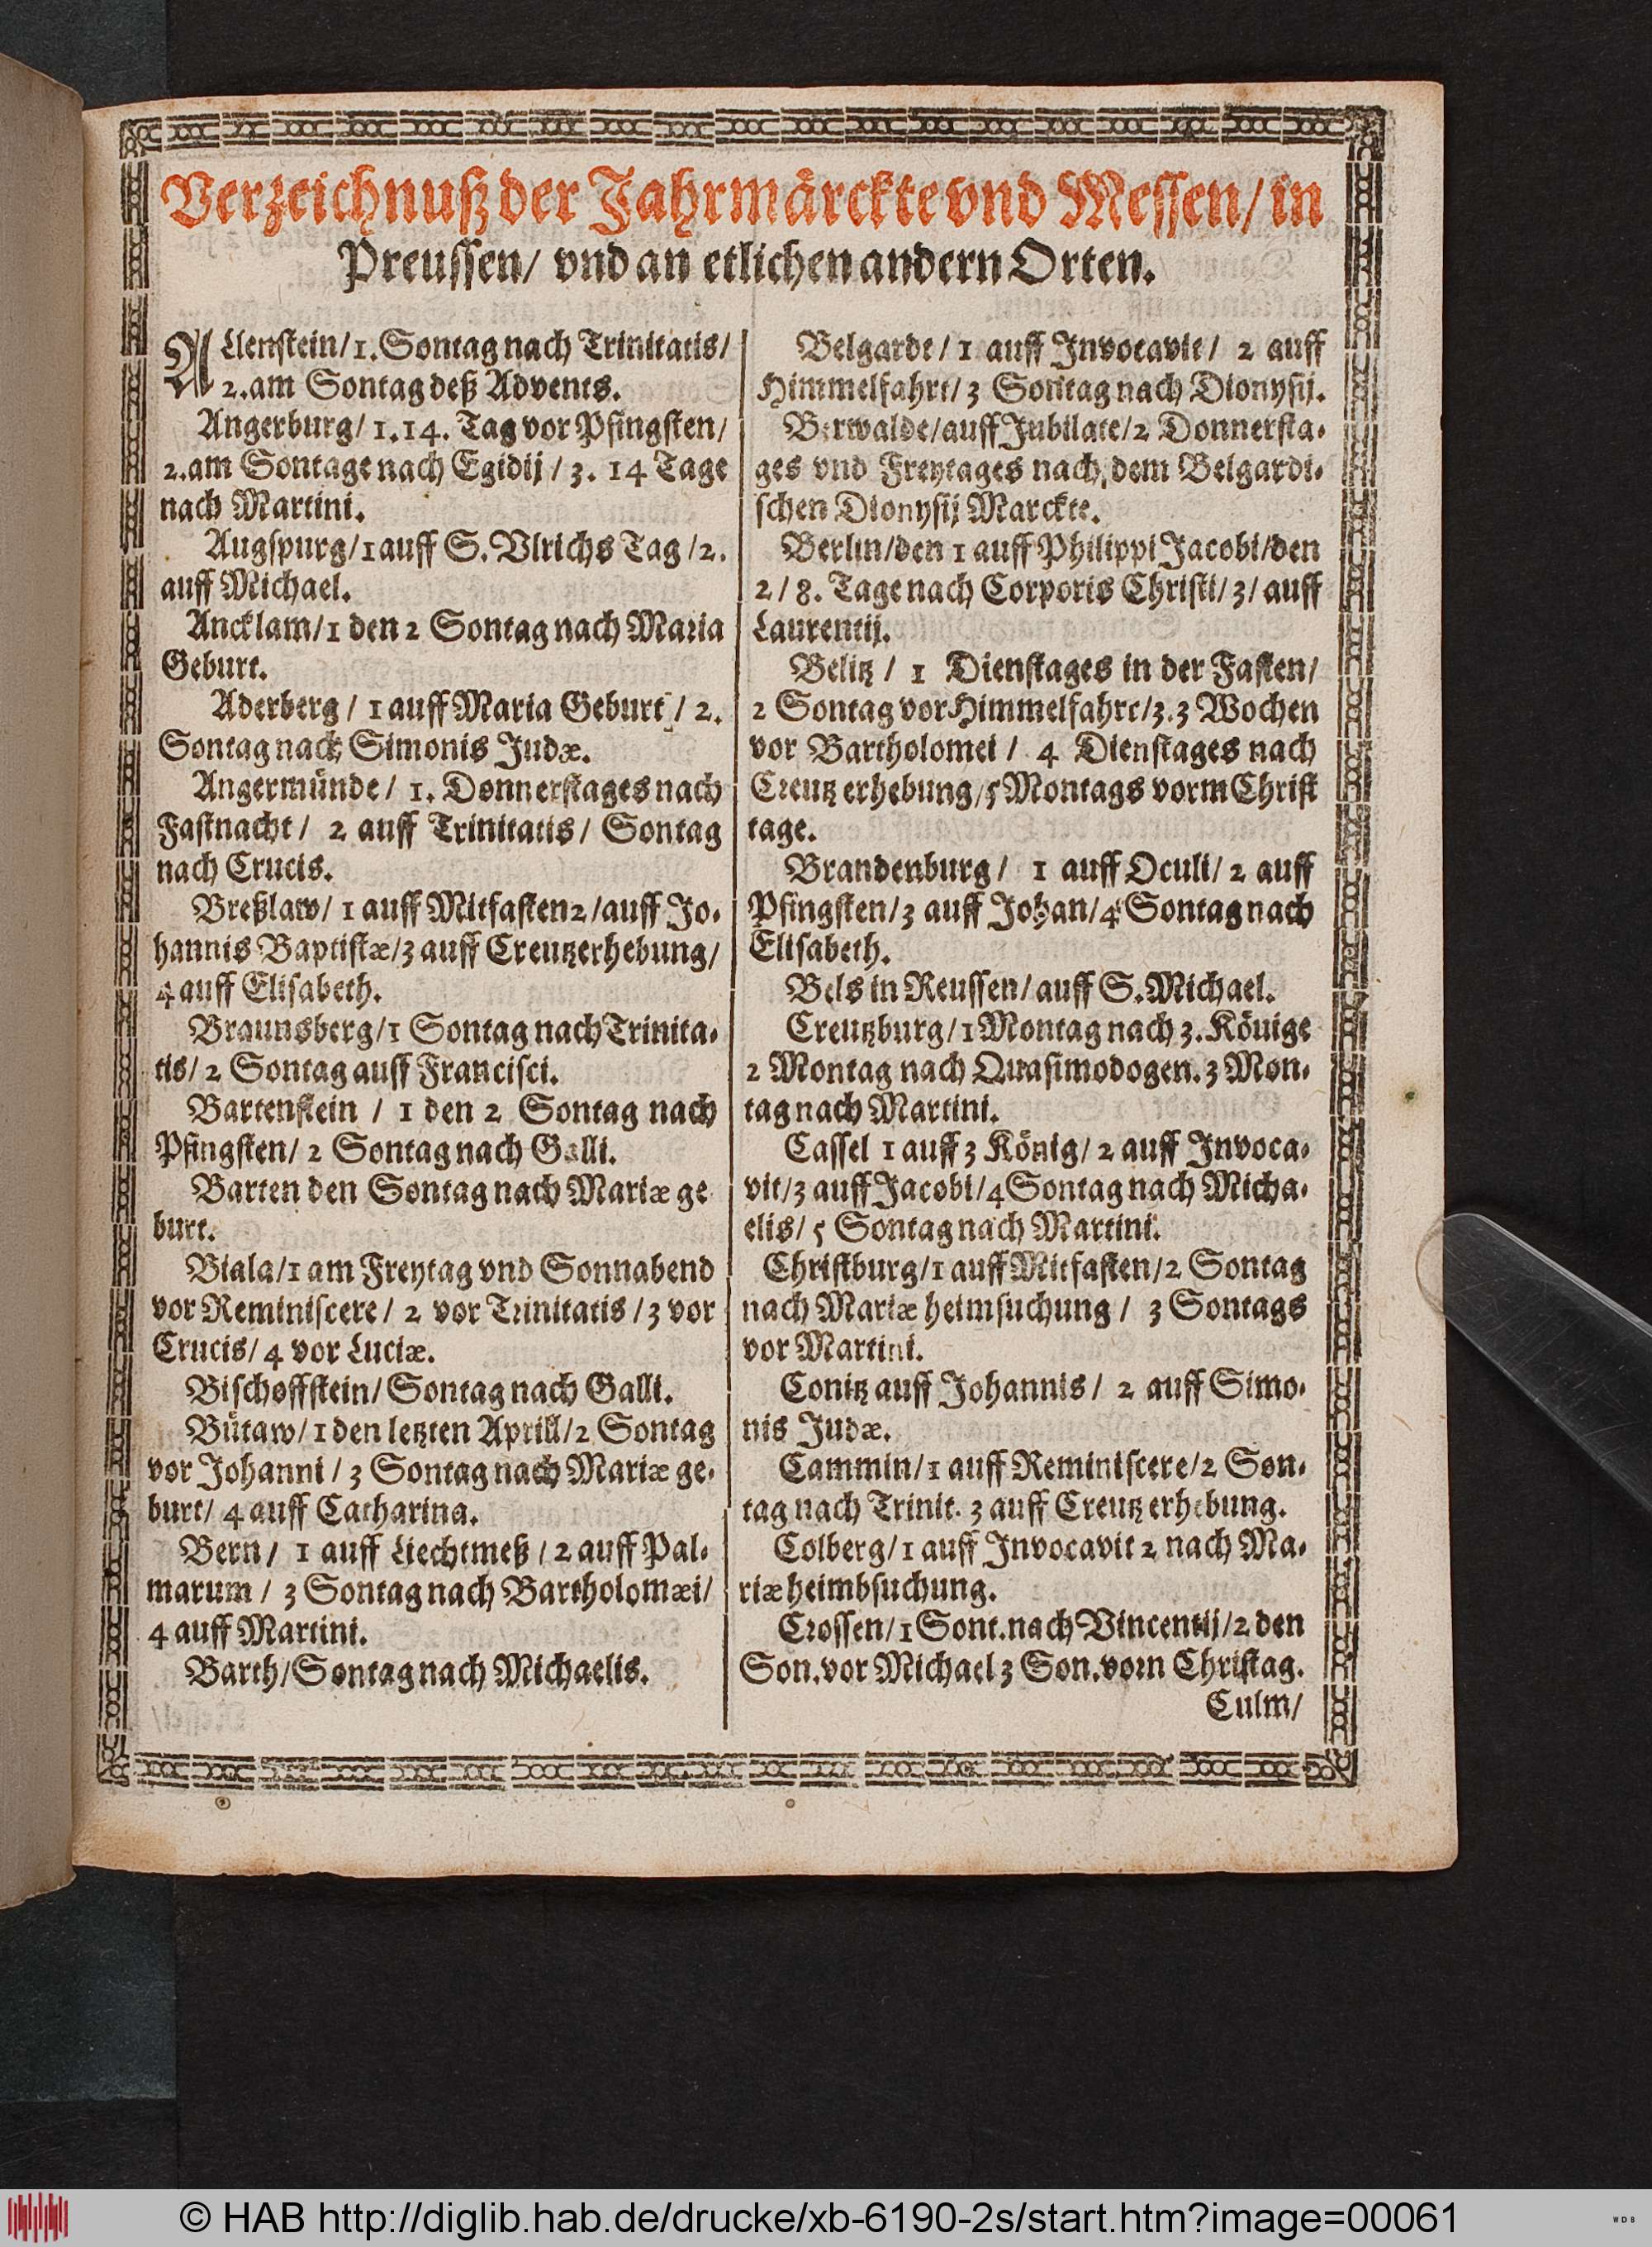 Verzeichnuß der Jahrmärckte vnd Messen/ in
Preussen/ vnd an etlichen andern Orten.
ALlenstein/1. Sontag nach Trinitatis/
2. am Sontag deß Advents.
Angerburg/ 1. 14. Tag vor Pfingsten/
2. am Sontage nach Egidij / 3. 14 Tage
nach Martini.
Augspurg/1 auff S. Vlrichs Tag /2.
auff Michael.
Ancklam/1 den 2 Sontag nach Maria
Geburt.
Aderberg / 1 auff Maria Geburt / 2.
Sontag nach Simonis Judæ.
Angermünde/ 1. Donnerstages nach
Fastnacht / 2 auff Trinitatis/ Sontag
nach Crucis.
Breßlaw/ 1 auff Mitfasten2/auff Jo-
hannis Baptistæ/3 auff Creutzerhebung/
4 auff Elisabeth.
Braunsberg/1 Sontag nach Trinita-
tis/ 2 Sontag auff Francisci.
Bartenstein / 1 den 2 Sontag nach
Pfingsten/ 2 Sontag nach Galli.
Barten den Sontag nach Mariæ ge
burt.
Biala/1 am Freytag vnd Sonnabend
vor Reminiscere/ 2 vor Trinitatis /3 vor
Crucis/ 4 vor Luciæ.
Bischoffstein/ Sontag nach Galli.
Bütaw/ 1 den letzten Aprill/2 Sontag
vor Johanni / 3 Sontag nach Mariæ ge-
burt/ 4 auff Catharina.
Bern/ 1 auff Liechtmeß / 2 auff Pal-
marum / 3 Sontag nach Bartholomæi/
4 auff Martini.
Barth/Sontag nach Michaelis.
Belgarde/ 1 auff Invocavit/ 2 auff
Himmelfahrt/ 3 Sontag nach Dionysij.
Berwalde/auff Jubilate/2 Donnersta-
ges vnd Freytages nach dem Belgardi-
schen Dionysij Marckte.
Berlin/den 1 auff Philippi Jacobi/den
2/ 8. Tage nach Corporis Christi/ 3/ auff
Laurentij.
Belitz / 1 Dienstages in der Fasten/
2 Sontag vor Himmelfahrt/3.3 Wochen
vor Bartholomei / 4 Dienstages nach
Creutz erhebung/5 Montags vorm Christ
tage.
Brandenburg/ 1 auff Oculi/ 2 auff
Pfingsten/3 auff Johan/4 Sontag nach
Elisabeth.
Bels in Reussen/ auff S. Michael.
Creutzburg/1 Montag nach 3. Köuige
2 Montag nach Quasimodogen. 3 Mon-
tag nach Martini.
Cassel 1 auff 3 König/ 2 auff Invoca-
vit/3 auff Jacobi/4 Sontag nach Micha-
elis/ 5 Sontag nach Martini.
Christburg/1 auff Mitfasten/2 Sontag
nach Mariæ heimsuchung / 3 Sontags
vor Martini.
Conitz auff Johannis/ 2 auff Simo-
nis Judæ.
Cammin/1 auff Reminiscere/2 Son-
tag nach Trinit. 3 auff Creutz erhebung.
Colberg/1 auff Invocavit 2 nach Ma-
riæ heimbsuchung.
Crossen/1 Sont. nach Vincentij/2 den
Son. vor Michael 3 Son. vorn Christag.
Culm/
© HAB http://diglib.hab.de/drucke/xb-6190-2s/start.htm?image=00061
WDB